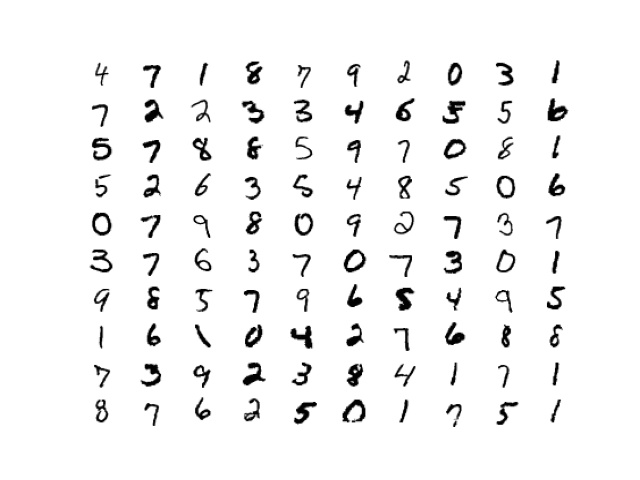 4 7 1 8 7 9 2 0 3 1
7 2 2 3 3 4 6 5 5 6
5 7 8 8 5 9 7 0 8 1
5 2 6 3 5 4 8 5 0 6
0 7 9 8 0 9 2 7 3 7
3 7 6 3 7 0 7 3 0 1
9 8 5 7 9 6 5 4 9 5
1 6 1 0 4 2 7 6 8 8
7 3 9 2 3 8 4 1 7 1
8 7 6 2 5 0 1 7 5 1